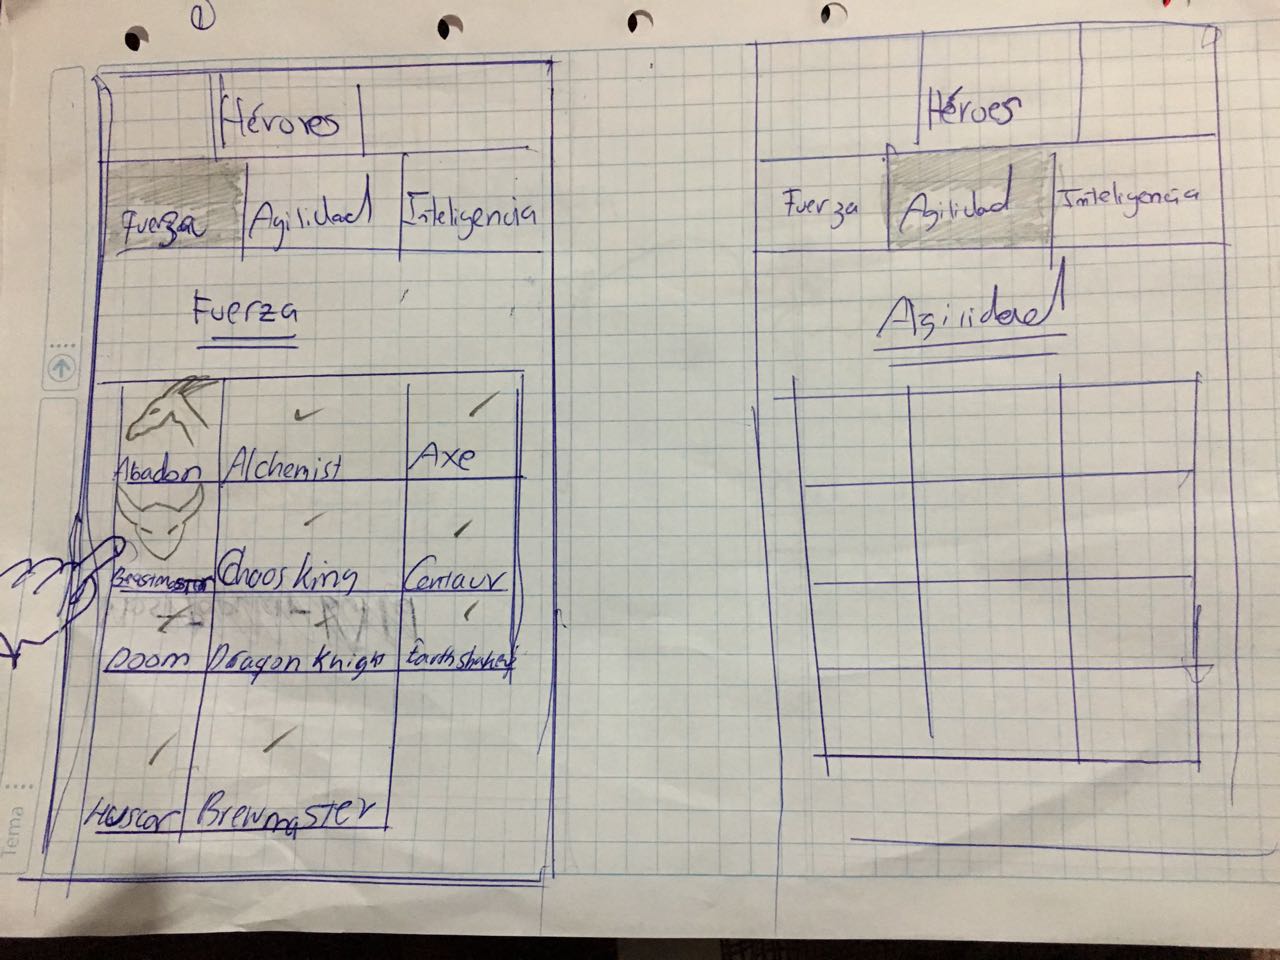 Hérores
Fuerza Agilidad Inteligencia
Fuerza
Abadon Alchemist Axe
Beastmaster Choos King Centaur
Doom Dragon Knigh Earthshaker
Huscar Brewmaster
Tema
Héroes
Fuerza Agilidad Inteligencia
Agilidad